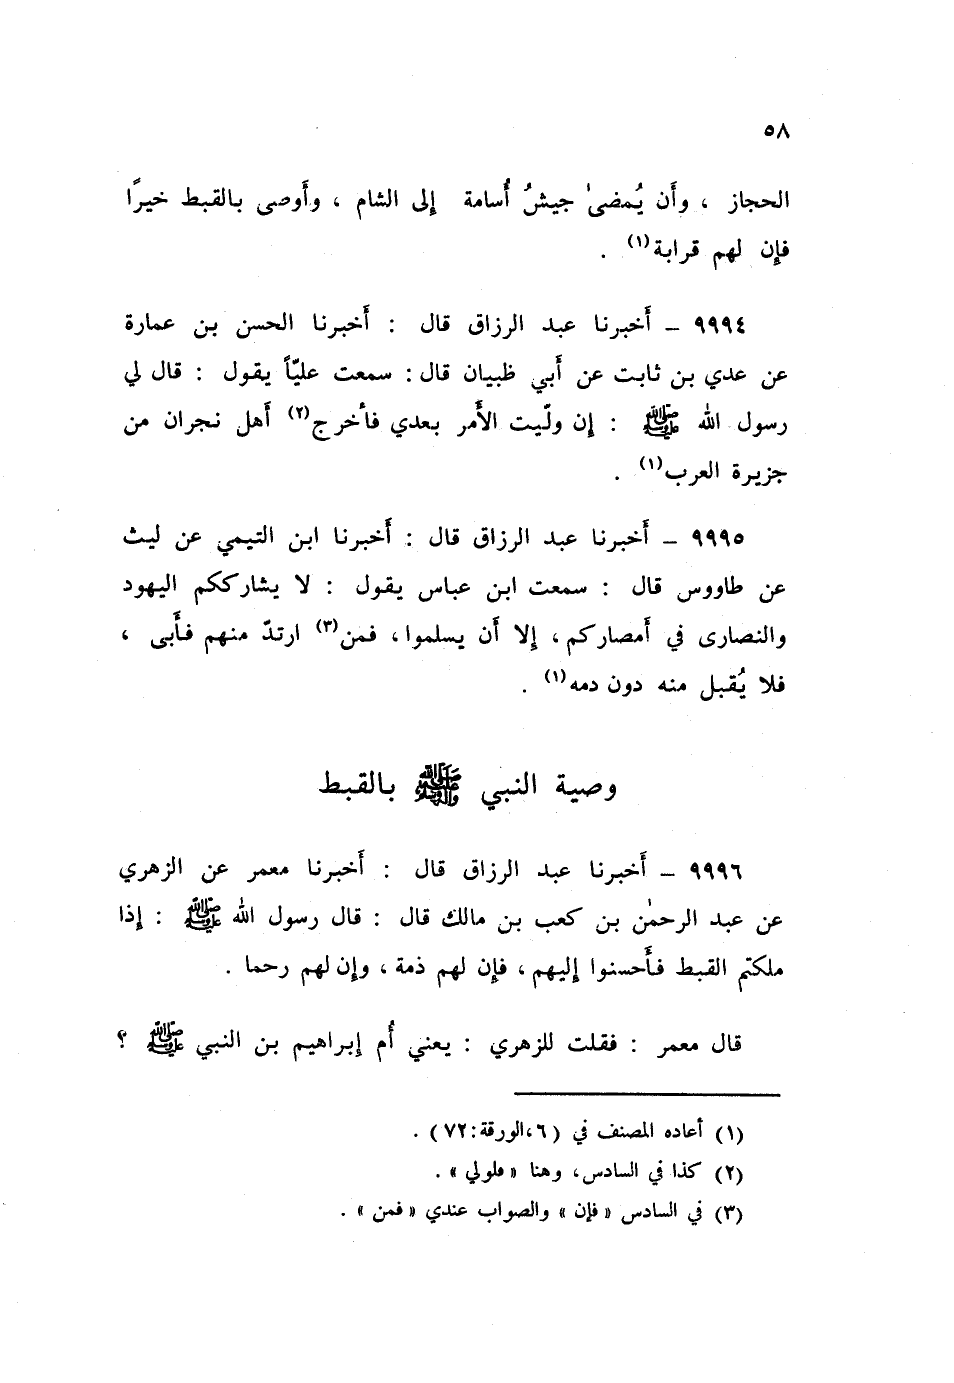 ٥٨
الحجاز ، وأَن يُمضىٰ جيشُ أُسامة إلى الشام ، وأَوصى بالقبط خيرًا
فإن لهم قرابة(١) .
٩٩٩٤ ـ أَخبرنا عبد الرزاق قال : أَخبرنا الحسن بن عمارة
عن عدي بن ثابت عن أَبي ظبيان قال : سمعت عليّاً يقول : قال لي
رسول الله ﷺ : إن ولّيت الأَمر بعدي فأَخرج(٢) أَهل نجران من
جزيرة العرب(١) .
٩٩٩٥ ـ أَخبرنا عبد الرزاق قال : أَخبرنا ابن التيمي عن ليث
عن طاووس قال : سمعت ابن عباس يقول : لا يشارككم اليهود
والنصارى في أَمصاركم ، إلا أَن يسلموا ، فمن(٣) ارتدّ منهم فأَبى ،
فلا يُقبل منه دون دمه(١) .
وصية النبي ﷺ بالقبط
٩٩٩٦ ـ أَخبرنا عبد الرزاق قال : أَخبرنا معمر عن الزهري
عن عبد الرحمٰن بن كعب بن مالك قال : قال رسول الله ﷺ : إذا
ملكتم القبط فأَحسنوا إليهم ، فإن لهم ذمة ، وإن لهم رحما .
قال معمر : فقلت للزهري : يعني أُم إبراهيم بن النبي ﷺ ؟
(١) أعاده المصنف في (٦،الورقة:٧٢) .
(٢) كذا في السادس، وهنا «فلولي» .
(٣) في السادس «فإن» والصواب عندي «فمن» .